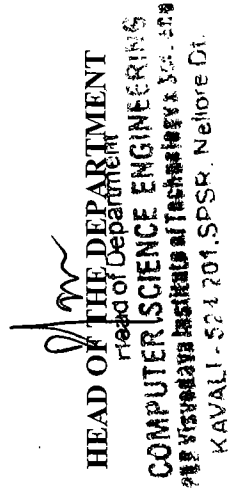 HEAD OF THE DEPARTMENT
Head of Department
COMPUTER SCIENCE ENGINEERING
Visvodaya Institute of Technology &
KAVALI - 524 201. SPSR. Nellore Dt.